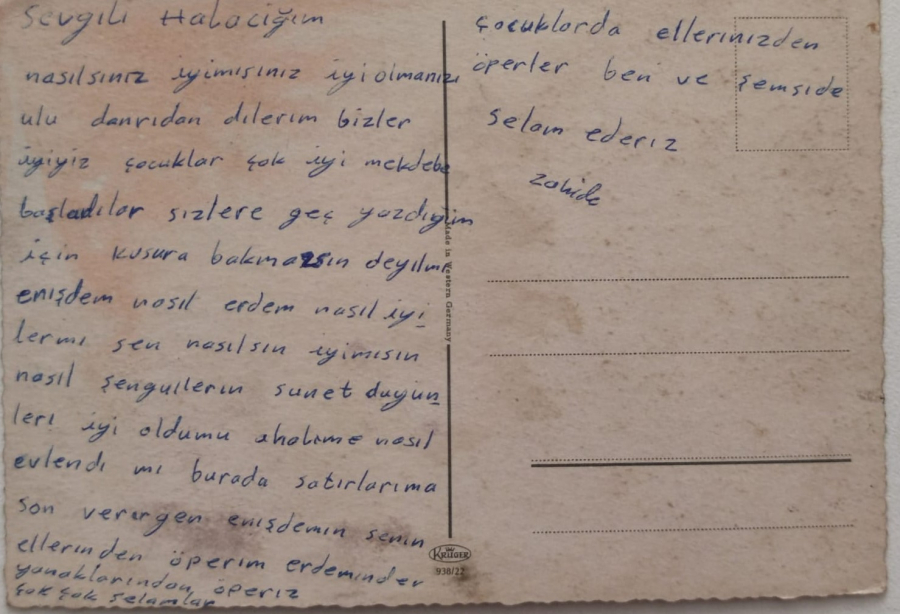 Sevgili Halacığım
nasılsınız iyimisiniz iyi olmanızı
ulu danrıdan dilerim bizler
iyiyiz çocuklar çok iyi mekdebe
başladılar sizlere geç yazdığım
için kusura bakmazsın deyilmi
enişdem nasıl erdem nasıl iyi
lermi sen nasılsın iyimisin
nasıl şengullerin sunet duyun
leri iyi oldumu ahalime nasıl
evlendi mi burada satırlarıma
son verirgen enişdemin senin
ellerinden öperim erdeminder
yanaklarından öperiz
çok çok selamlar
çocuklarda ellerinizden
öperler ben ve şemside
selam ederiz
zahide
Made in Western Germany
KRÜGER
938/22